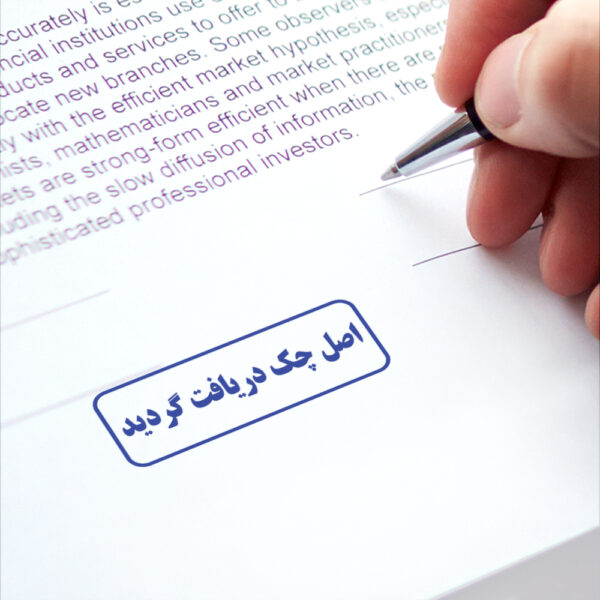 ccurately is es
ncial institutions use
ducts and services to offer to
ocate new branches. Some observers
ly with the efficient market hypothesis, especi
ists, mathematicians and market practitioners
ets are strong-form efficient when there are
uding the slow diffusion of information, the
ophisticated professional investors.
اصل چک دریافت گردید